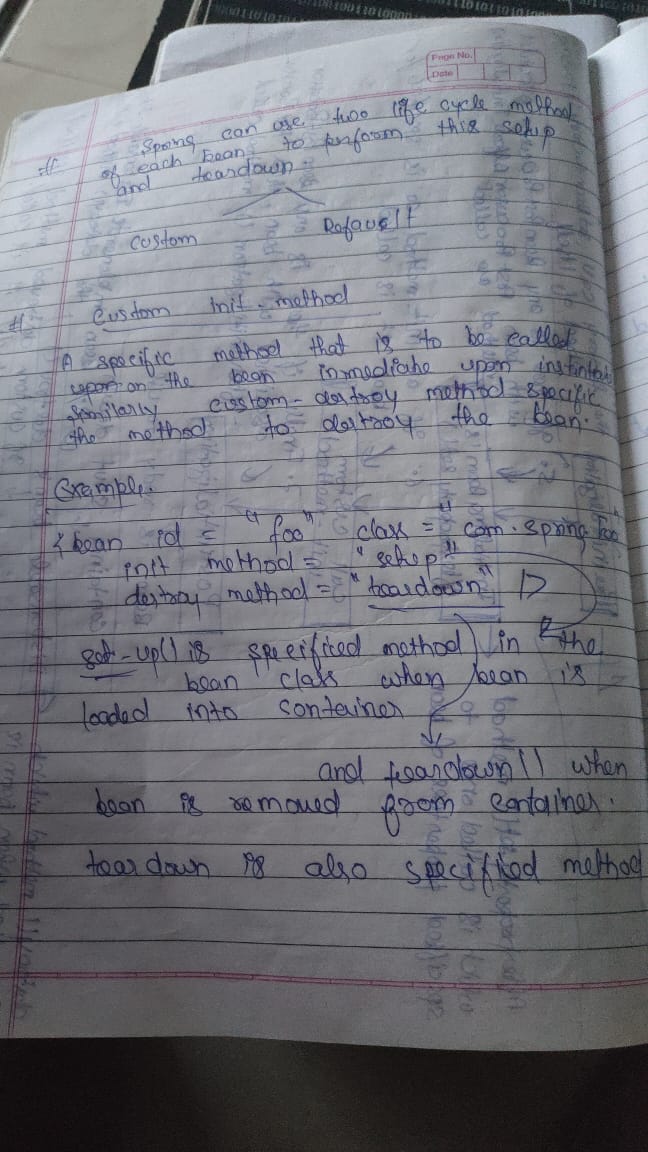 Page No.
Date
# Spring can use two life cycle method
of each bean to perform this setup
and teardown
Custom Default
# Custom init-method
A specific method that is to be called
upon on the bean immediate upon
similarly custom-destroy method specific
the method to destroy the bean.
Example.
< bean id = "foo" class = "com.spring Foo"
init method = "setup"
destroy method = "teardown" />
set-up() is specified method in the
bean class when bean is
loaded into container
and teardown() when
bean is removed from container.
teardown is also specified method